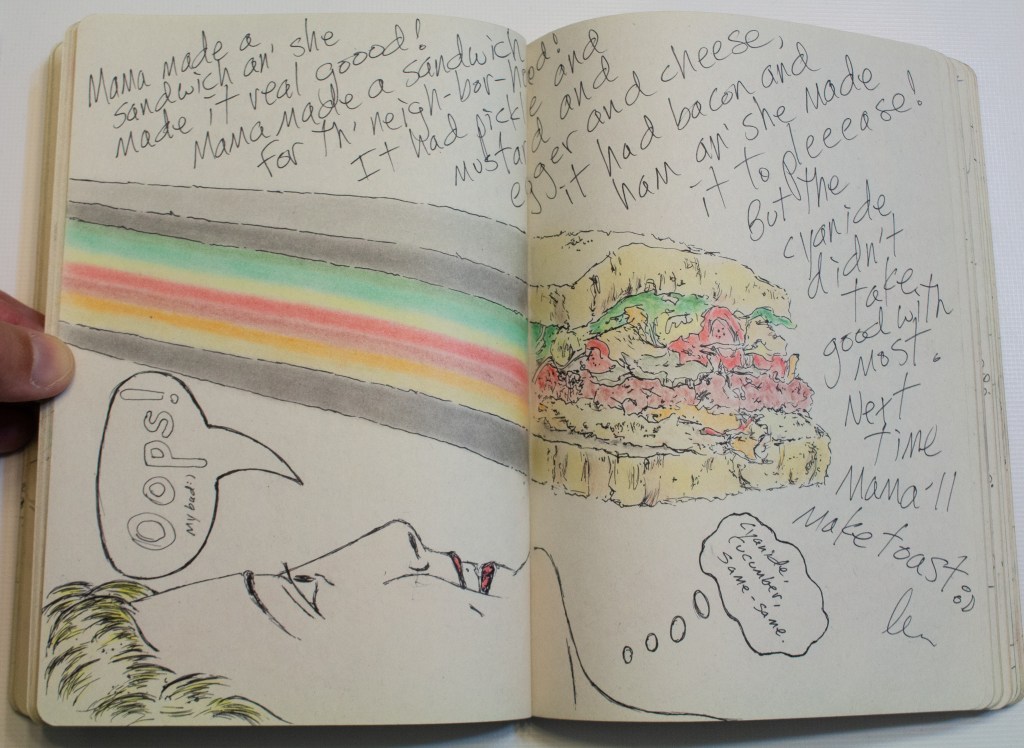 Mama made a
sandwich an' she
made it real goood!
Mama made a sandwich
for th' neigh-bor-hood!
It had pickle and
mustard and
egger and cheese,
it had bacon and
ham an' she made
it to pleeease!
But the
cyanide
didn't
take
good with
most.
Next
time
Mama'll
make toast
Oops!
My bad :)
Cyanide,
cucumber,
same-same.